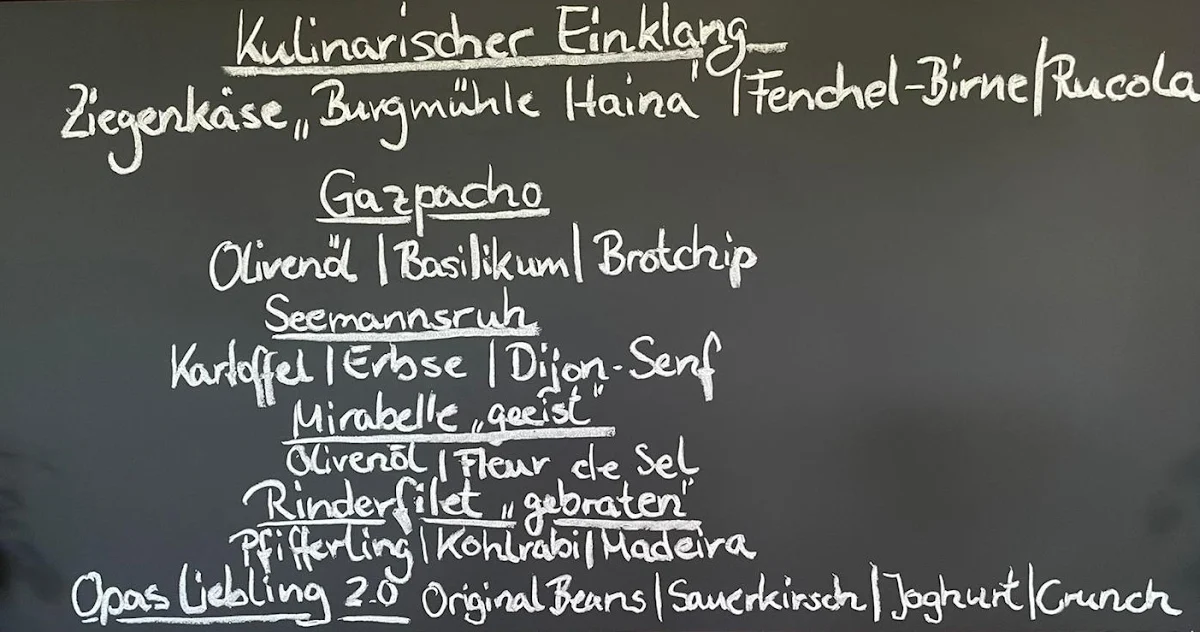 Kulinarischer Einklang
Ziegenkäse „Burgmühle Haina" | Fenchel-Birne/Rucola
Gazpacho
Olivenöl | Basilikum | Brotchip
Seemannsruh
Kartoffel | Erbse | Dijon-Senf
Mirabelle „geeist"
Olivenöl | Fleur de Sel
Rinderfilet „gebraten"
Pfifferling | Kohlrabi | Madeira
Opas Liebling 2.0 Original Beans | Sauerkirsch | Joghurt | Crunch